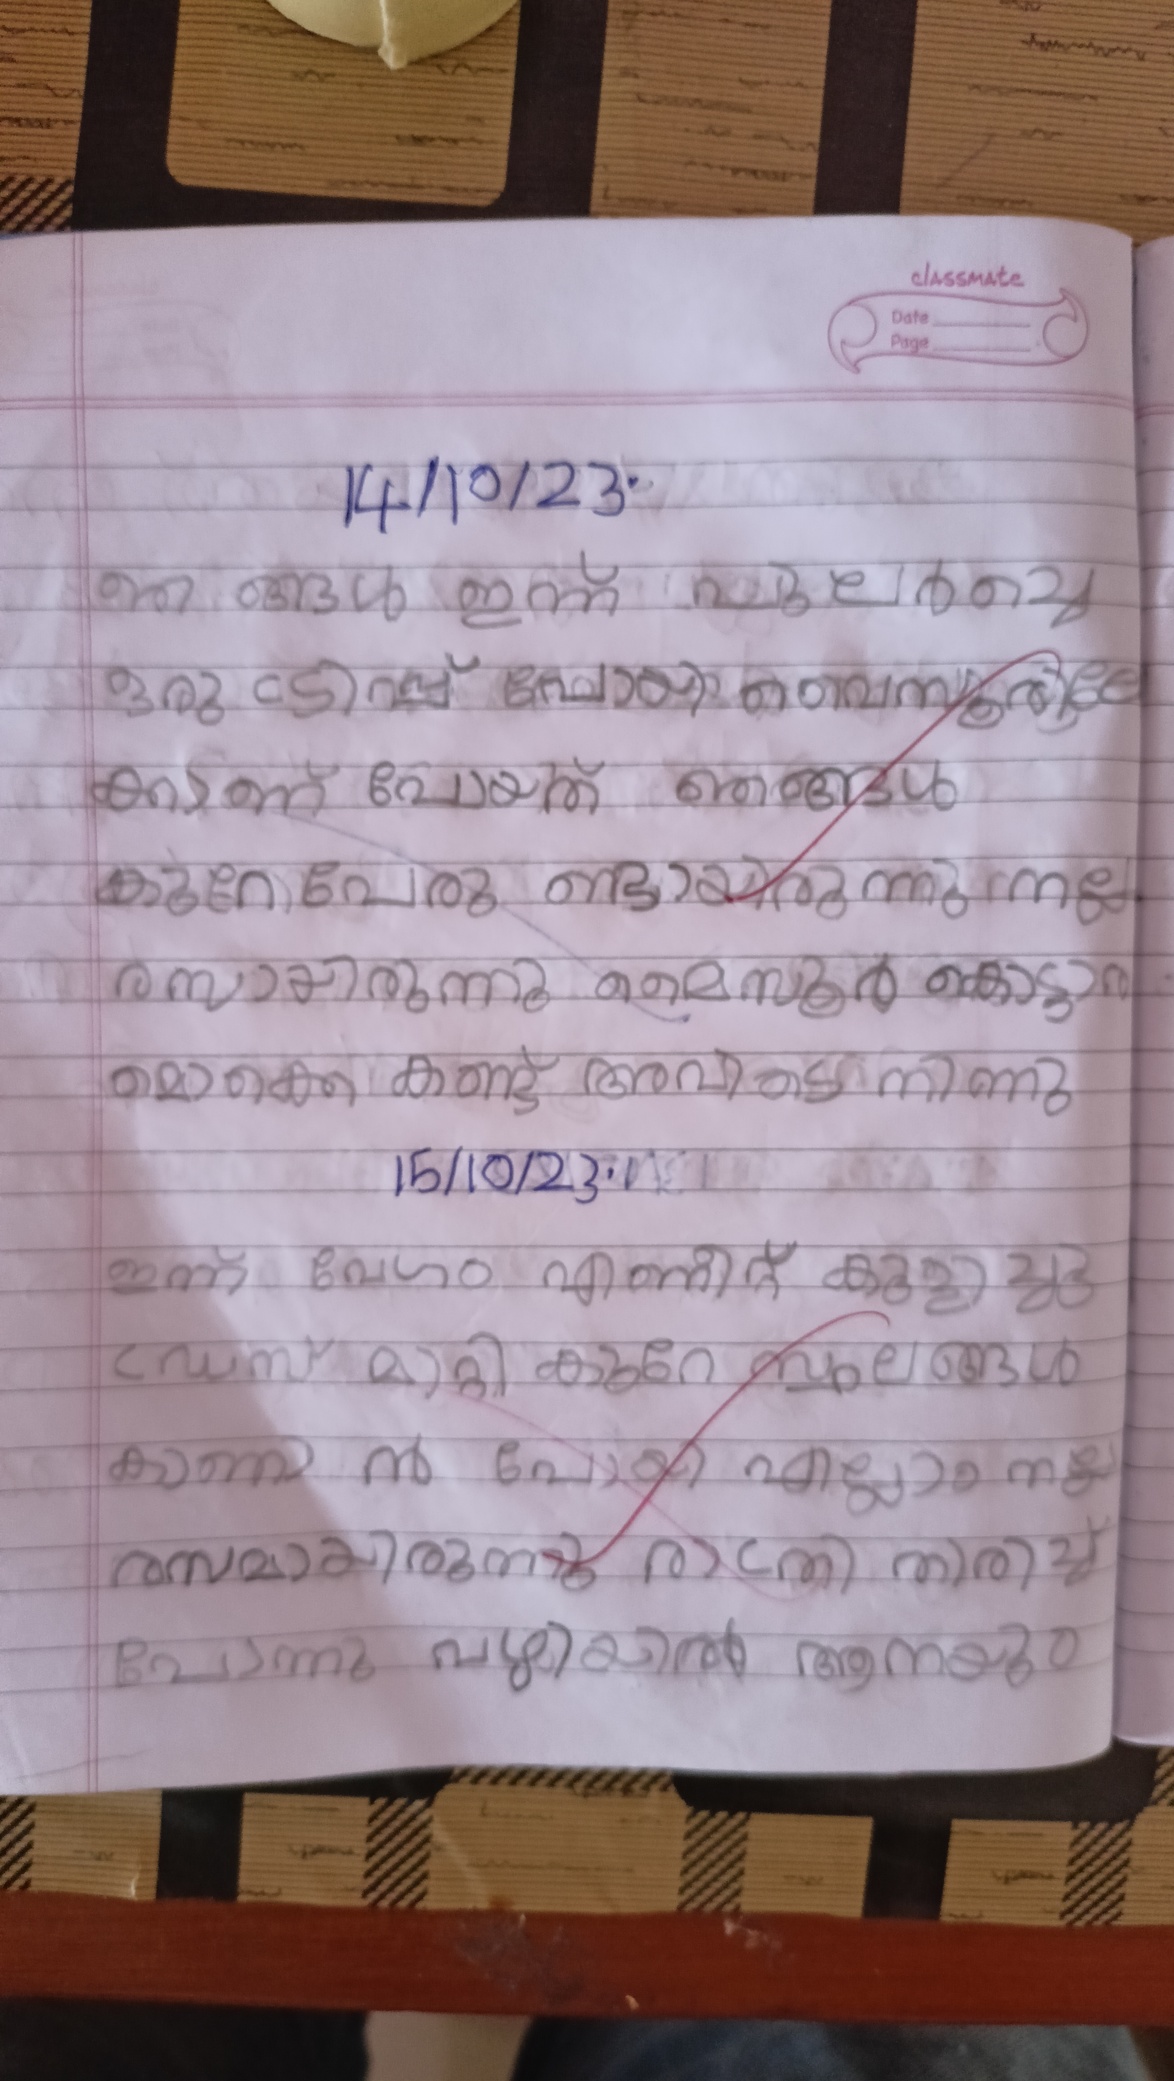 classmate
Date
Page
14/10/23.
ഞങ്ങൾ ഇന്ന് പുലർച്ചെ
ഒരു ട്രിപ്പ് പോയി മൈസൂരിലേ
ക്കാണ് പോയത് ഞങ്ങൾ
കുറേ പേരു ണ്ടായിരുന്നു നല്ല
രസായിരുന്നു മൈസൂർ കൊട്ടാര
മൊക്കെ കണ്ട് അവിടെ നിന്നു
15/10/23.
ഇന്ന് വേഗം എണീറ്റ് കുളിച്ചു
ഡ്രസ് മാറ്റി കുറേ സ്ഥലങ്ങൾ
കാണാ ൻ പോയി എല്ലാം നല്ല
രസമായിരുന്നു രാത്രി തിരിച്ച്
പോന്നു വഴിയിൽ ആനയും